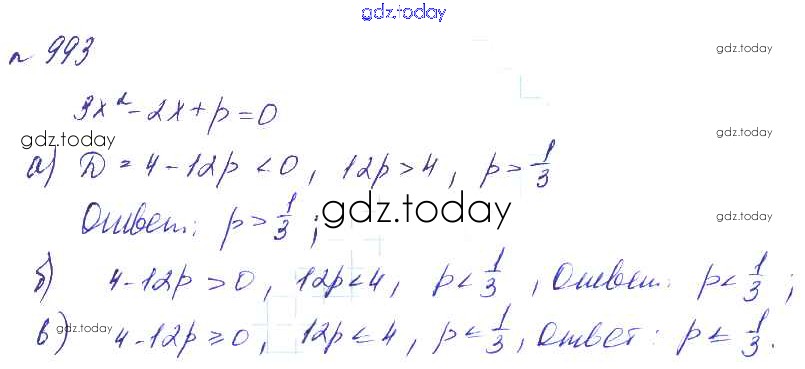 gdz.today
n 993
gdz.today
3x² - 2x + p = 0
gdz.today
gdz.today
а) D = 4 - 12p < 0, 12p > 4, p > 1/3
gdz.today
Ответ: p > 1/3;
gdz.today
б) 4 - 12p > 0, 12p < 4, p < 1/3, Ответ: p < 1/3;
gdz.today
в) 4 - 12p ≥ 0, 12p ≤ 4, p ≤ 1/3, Ответ: p ≤ 1/3.
gdz.today